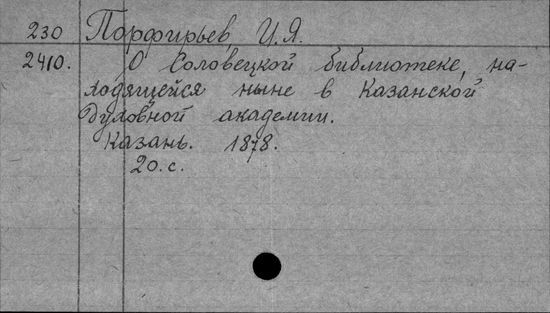 230 Порфирьев И.Я.
2410. О Соловецкой библиотеке, на-
ходящейся ныне в Казанской
Духовной академии.
Казань. 1878.
20.с.